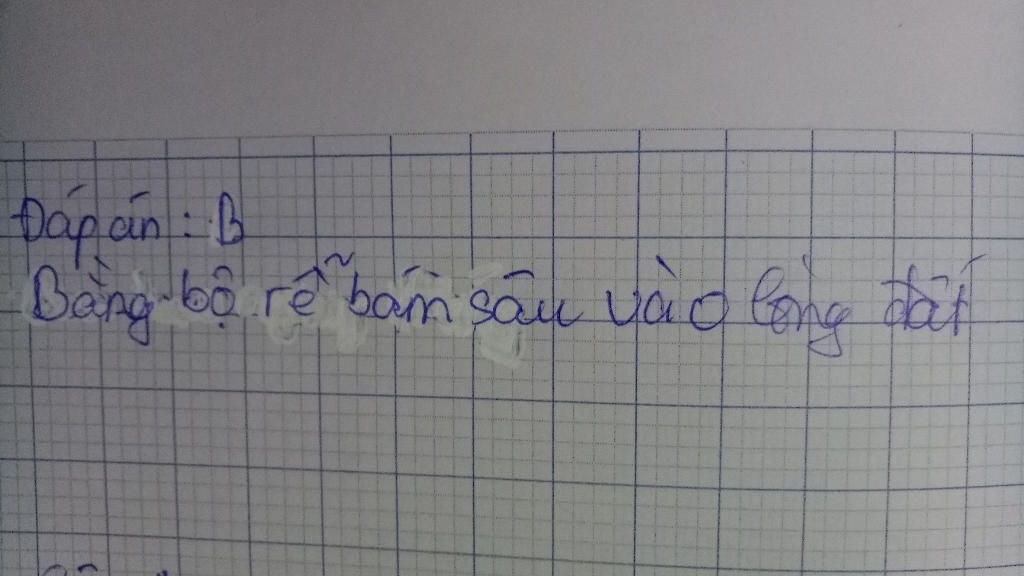 Đáp án : B
Bằng bộ rễ bám sâu vào lòng đất